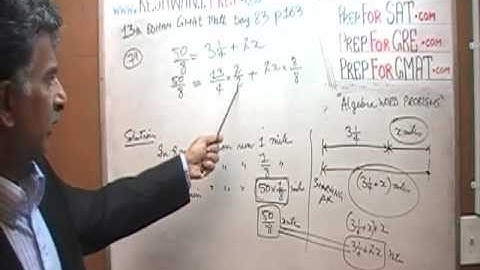 13th EDITION GMAT Math Day 83 p163
PREPFORSAT.com
PREPFORGRE.com
PREPFORGMAT.com
50/8 = 3 1/4 + 2x
50/8 = 13/4 × 2/2 + 2x × 8/8
"Algebra WORD PROBLEMS"
Solution
run 1 mile
1/8 "
50 × 1/8
50/8 mile
3 1/4
x miles
STARTING
(3 1/4 + x) miles
(3 1/4 + x) + x
3 1/4 + 2x